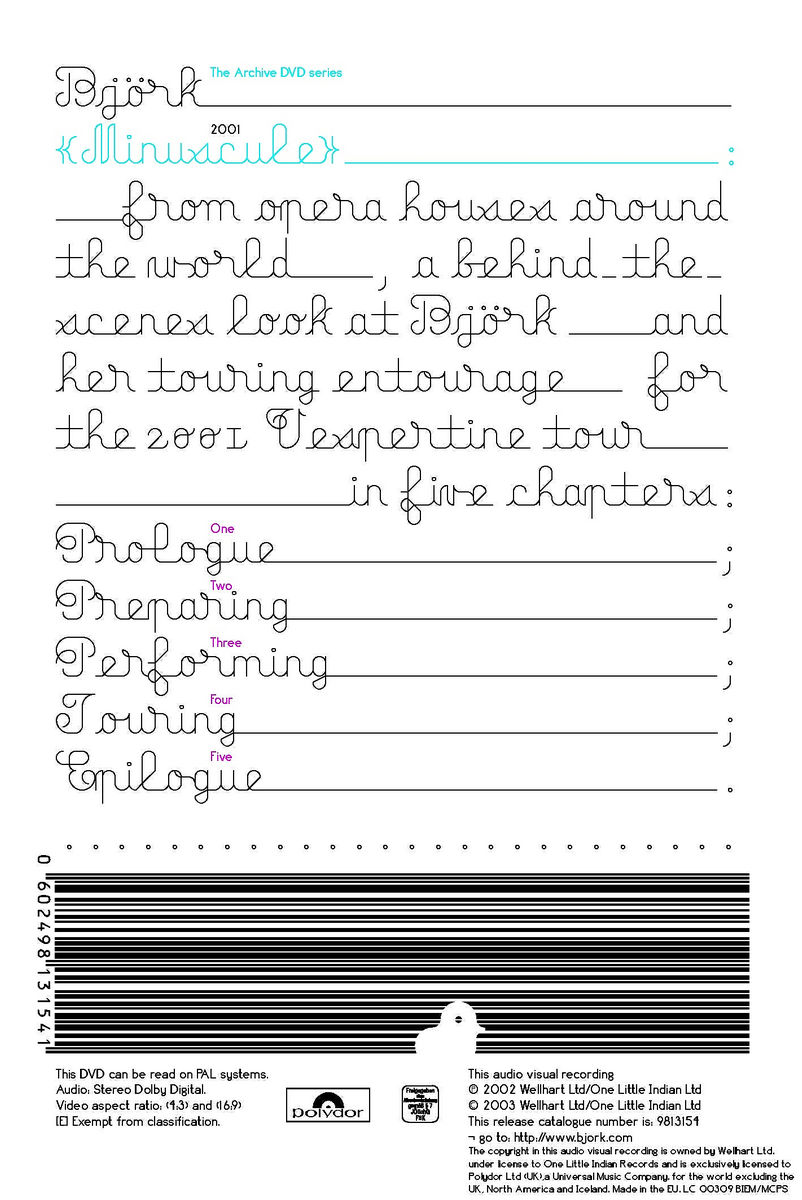 The Archive DVD series
Björk
2001
{Minuscule} :
from opera houses around
the world , a behind-the-
scenes look at Björk and
her touring entourage for
the 2001 Vespertine tour
in five chapters:
One
Prologue ;
Two
Preparing ;
Three
Performing ;
Four
Touring ;
Five
Epilogue .
0 602498 131541
This DVD can be read on PAL systems.
Audio: Stereo Dolby Digital.
Video aspect ratio: (4:3) and (16:9)
[E] Exempt from classification.
polydor
Freigegeben
ohne
Altersbeschränkung
gemäß § 7
JÖSchG
FSK
This audio visual recording
℗ 2002 Wellhart Ltd/One Little Indian Ltd
© 2003 Wellhart Ltd/One Little Indian Ltd
This release catalogue number is: 9813154
¬ go to: http://www.bjork.com
The copyright in this audio visual recording is owned by Wellhart Ltd.
under license to One Little Indian Records and is exclusively licensed to
Polydor Ltd (UK),a Universal Music Company. for the world excluding the
UK, North America and Iceland. Made in the EU. LC 00309 BIEM/MCPS